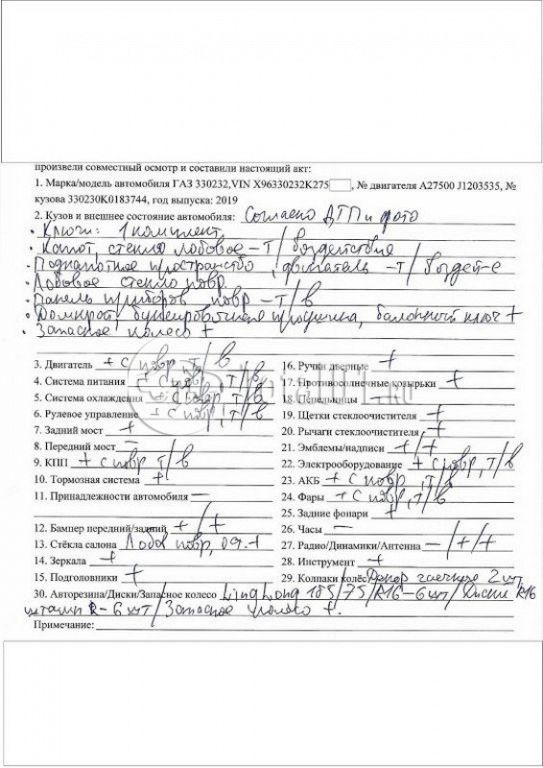 произвели совместный осмотр и составили настоящий акт:
1. Марка/модель автомобиля ГАЗ 330232,VIN X96330232K275 , № двигателя А27500 J1203535, №
кузова 330230K0183744, год выпуска: 2019
2. Кузов и внешнее состояние автомобиля: Согласно ДТП и фото
• Ключи: 1 комплект
• Капот, стекло лобовое – Т/воздействие
Подкапотное пространство, двигатель – Т/воздей-е
• Лобовое стекло повр.
• Панель приборов повр – Т/в
• Домкрат, буксировочная проушина, балонный ключ +
• Запасное колесо +
3. Двигатель + с повр, т/в
4. Система питания + с повр, т/в
5. Система охлаждения + с повр, т/в
6. Рулевое управление + с повр, т/в
7. Задний мост +
8. Передний мост —
9. КПП + с повр т/в
10. Тормозная система +
11. Принадлежности автомобиля —
12. Бампер передний/задний + / +
13. Стёкла салона Лобов повр, ост. +
14. Зеркала +
15. Подголовники +
16. Ручки дверные +
17. Противосолнечные козырьки +
18. Пепельницы —
19. Щетки стеклоочистителя +
20. Рычаги стеклоочистителя +
21. Эмблемы/надписи + / +
22. Электрооборудование + с повр, т/в
23. АКБ + с повр, т/в
24. Фары + с повр, т/в
25. Задние фонари +
26. Часы —
27. Радио/Динамики/Антенна — / + / +
28. Инструмент +
29. Колпаки колёс Декор 2 шт
30. Авторезина/Диски/Запасное колесо LingLong 185/75/R16 – 6 шт/Диски R16
штамп – 6 шт/Запасное колесо +.
Примечание: